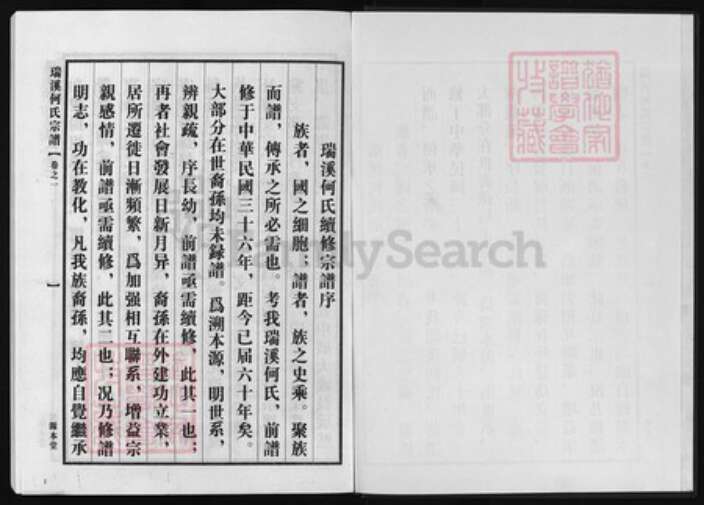 瑞溪何氏續修宗譜序
族者，國之細胞；譜者，族之史乘。聚族
而譜，傳承之所必需也。考我瑞溪何氏，前譜
修于中華民國三十六年，距今已屆六十年矣。
大部分在世裔孫均未録譜。爲溯本源，明世系，
辨親疏，序長幼，前譜亟需續修，此其一也；
再者社會發展日新月异，裔孫在外建功立業，
居所遷徙日漸頻繁，爲加强相互聯系，增益宗
親感情，前譜亟需續修，此其二也；况乃修譜
明志，功在教化，凡我族裔孫，均應自覺繼承
瑞溪何氏宗譜【卷之一
】
FamilySearch
譜學會
收藏